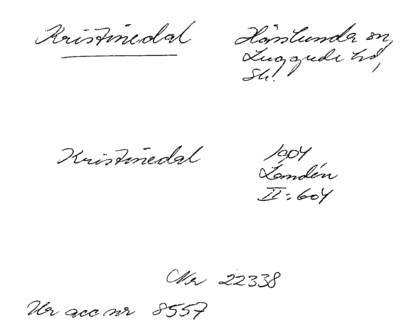 Kristinedal Hässlunda sn,
Luggude hd,
Sk.
Kristinedal 1904
Landén
II: 604
Nr 22338
Ur acc nr 8557